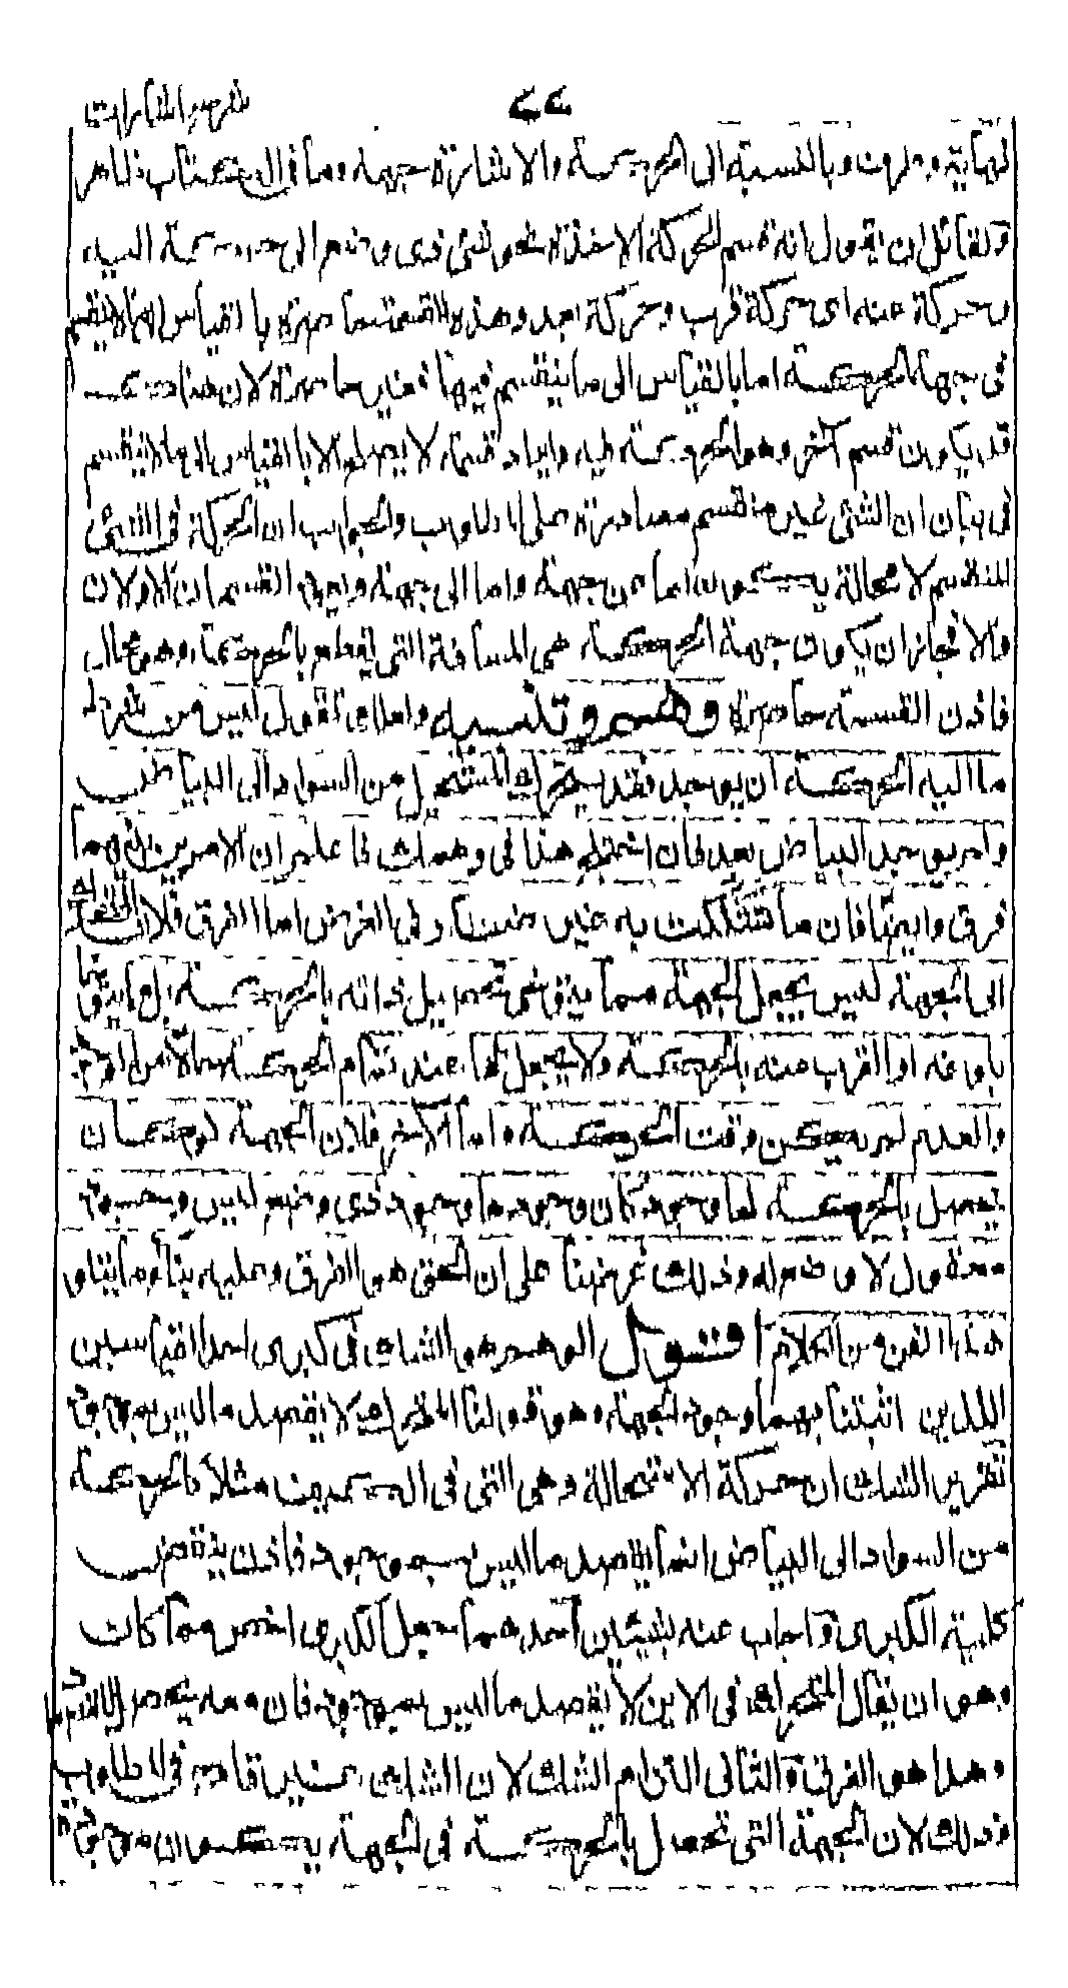 شرح اشارات
٤٤
نهاية وطرف وبالنسبة الى الحركة والاشارة جهة وما فى الكتاب ظاهر
ولقائل ان يقول انه قسم الحركة الاخذة نحو شئ ذى وضع الى حركة اليه
وحركة عنه اى حركة قرب وحركة بعد وهذه القسمة حاصرة بالقياس الى ما لا ينقسم
فى جهة الحركة اما بالقياس الى ما ينقسم فيها فغير حاصرة لان هناك
قد يكون قسم آخر وهو الحركة فيه وايراد قسمة لا يصلح الا بالقياس الى ما لا ينقسم
فى بيان ان الشئ غير منقسم مصادرة على المطلوب والجواب ان الحركة فى الشئ
المنقسم لا محالة يكون اما من جهة واما الى جهة ويعود القسمان الاولان
والا فجائز ان يكون جهة الحركة هى المسافة التى يقطع بالحركة وهو محال
فاذن القسمة حاصرة وهم وتنبيه واعلم تقول ليس من شرط
ما اليه الحركة ان يوجد فقد يتحرك المستحيل من السواد الى البياض
ولم يوجد البياض بعد فان اختلج هذا فى وهمك فاعلم ان الامرين بينهما
فرق وايضا فان ما تشككت به غير ضائر فى الغرض اما الفرق فلان المتحرك
الى الجهة ليس يجعل الجهة مما يتوخى تحصيل ذاته بالحركة بل مما يتوخى
بلوغه او القرب منه بالحركة ولا يجعل لها عند تمام الحركة حالا من الوجود
والعدم لم يكن وقت الحركة واما الآخر فلان الجهة لو كان
يحصل بالحركة لها وجود كان وجودها وجود ذى وضع ليس وجود
معقول لا وضع له وذلك غرضنا على ان الحق هو الفرق وعليه بناء ما يتلو
هذا الفن من الكلام اقول الوهم هو الشك فى كبرى احد القياسين
اللذين اثبتنا بهما وجود الجهة وهو قولنا المتحرك لا يقصد ما ليس بموجود
تقرير الشك ان حركة الاستحالة وهى التى فى الكيف مثلا كالحركة
من السواد الى البياض انما يقصد ما ليس بموجود فاذن ينتقض
كلية الكبرى واجاب عنه بشيئين احدهما جعل الكبرى اخص مما كانت
وهو ان يقال المتحرك فى الاين لا يقصد ما ليس بموجود فان معه يتحصل المقصود
وهذا هو الفرق والثانى التزام الشك لان الشك غير قادح فى المطلوب
وذلك لان الجهة التى تحصل بالحركة فى الجهة يكون موجودة